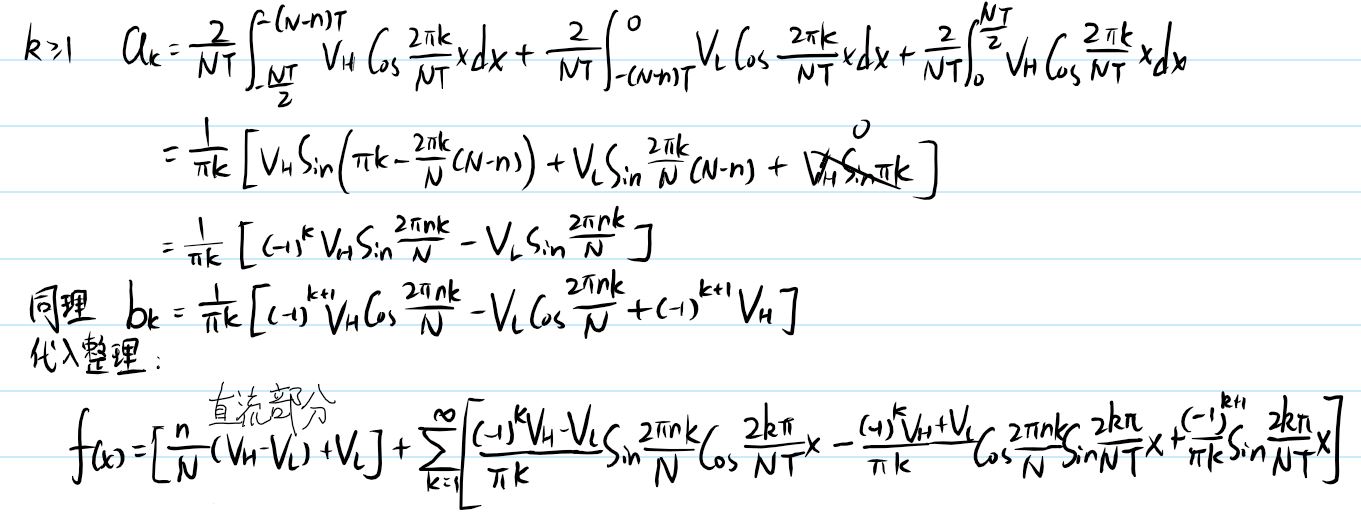 k≥1 a_k = \frac{2}{NT}\int_{-\frac{NT}{2}}^{-(N-n)T} V_H Cos\frac{2πk}{NT}xdx + \frac{2}{NT}\int_{-(N-n)T}^{0} V_L Cos\frac{2πk}{NT}xdx + \frac{2}{NT}\int_{0}^{\frac{NT}{2}} V_H Cos\frac{2πk}{NT}xdx
= \frac{1}{πk}[V_H Sin(πk-\frac{2πk}{N}(N-n)) + V_L Sin\frac{2πk}{N}(N-n) + \cancel{V_H Sinπk}^{0}]
= \frac{1}{πk}[(-1)^k V_H Sin\frac{2πnk}{N} - V_L Sin\frac{2πnk}{N}]
同理 b_k = \frac{1}{πk}[(-1)^{k+1} V_H Cos\frac{2πnk}{N} - V_L Cos\frac{2πnk}{N} + (-1)^{k+1} V_H]
代入整理:
直流部分
f(x) = [\frac{n}{N}(V_H-V_L)+V_L] + \sum_{k=1}^{∞}[\frac{(-1)^k V_H-V_L}{πk} Sin\frac{2πnk}{N} Cos\frac{2kπ}{NT}x - \frac{(-1)^k V_H+V_L}{πk} Cos\frac{2πnk}{N} Sin\frac{2kπ}{NT}x + \frac{(-1)^{k+1}}{πk} Sin\frac{2kπ}{NT}x]